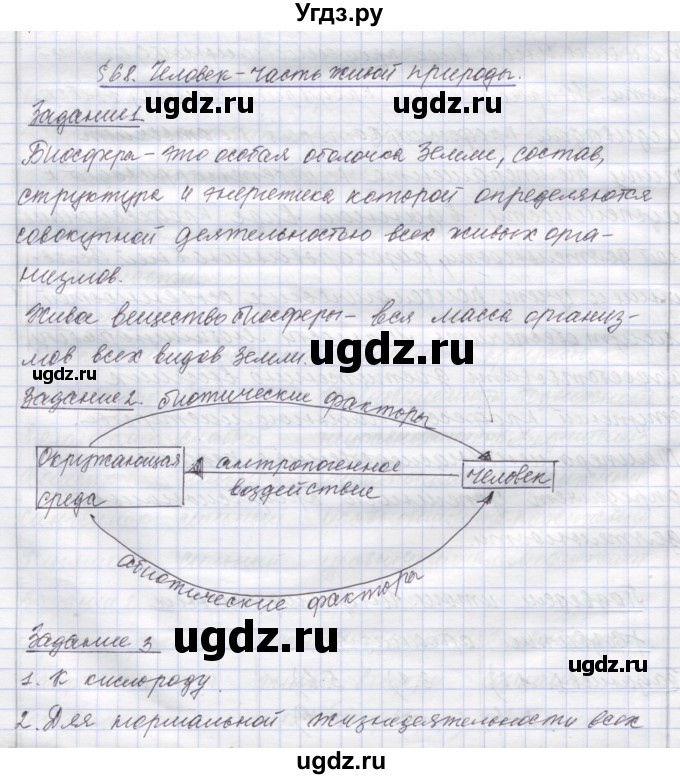 Угдз.ру
§68. Человек-часть живой природы.
ugdz.ru ugdz.ru
Задание 1
Биосфера - это особая оболочка Земли, состав,
структура и энергетика которой определяются
совокупной деятельностью всех живых орга-
низмов.
Живое вещество биосферы - вся масса организ-
мов всех видов Земли.
ugdz.ru
ugdz.ru
Задание 2. биотические факторы
Окружающая
среда
антропогенное
воздействие
человек
абиотические факторы
Задание 3
ugdz.ru
ugdz.ru
1. К кислороду.
2. Для нормальной жизнедеятельности всех
ugdz.ru